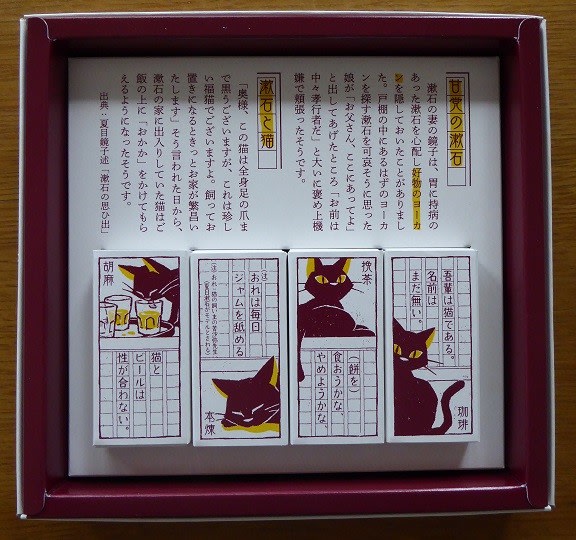 甘党の漱石
漱石の妻の鏡子は、胃に持病の
あった漱石を心配し好物のヨーカ
ンを隠しておいたことがありまし
た。戸棚の中にあるはずのヨーカ
ンを探す漱石を可哀そうに思った
娘が「お父さん、ここにあってよ」
と出してあげたところ「お前は
中々孝行者だ」と大いに褒め上機
嫌で頬張ったそうです。
漱石と猫
「奥様、この猫は全身足の爪ま
で黒うございますが、これは珍し
い福猫でございますよ。飼ってお
置きになるときっとお家が繁昌い
たします」そう言われた日から、
漱石の家に出入りしていた猫はご
飯の上に「おかか」をかけてもら
えるようになったそうです。
出典：夏目鏡子述「漱石の思ひ出」
吾輩は猫である。
名前は
まだ無い。
珈琲
挽茶
(餅を)
食おうかな、
やめようかな。
(注)
おれは毎日
ジャムを舐める
本煉
胡麻
猫と
ビールは
性が合わない。